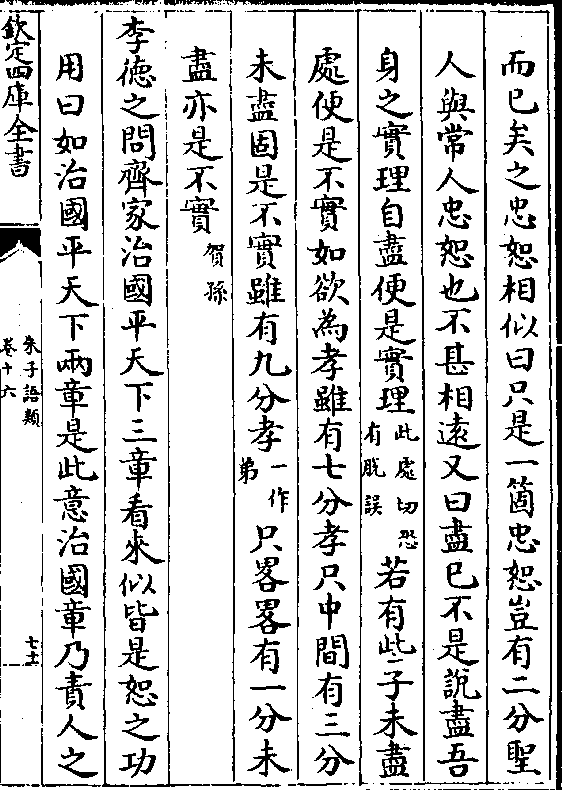 而已矣之忠恕相似曰只是一箇忠恕豈有二分聖
人與常人忠恕也不甚相逺又曰盡已不是說盡吾
身之實理自盡便是實理此處切恐有脱誤若有些子未盡
處便是不實如欲為孝雖有七分孝只中間有三分
未盡固是不實雖有九分孝一作弟只畧畧有一分未
盡亦是不實賀孫
李徳之問齊家治國平天下三章看來似皆是恕之功
用曰如治國平天下兩章是此意治國章乃責人之
欽定四庫全書
朱子語類
卷十六